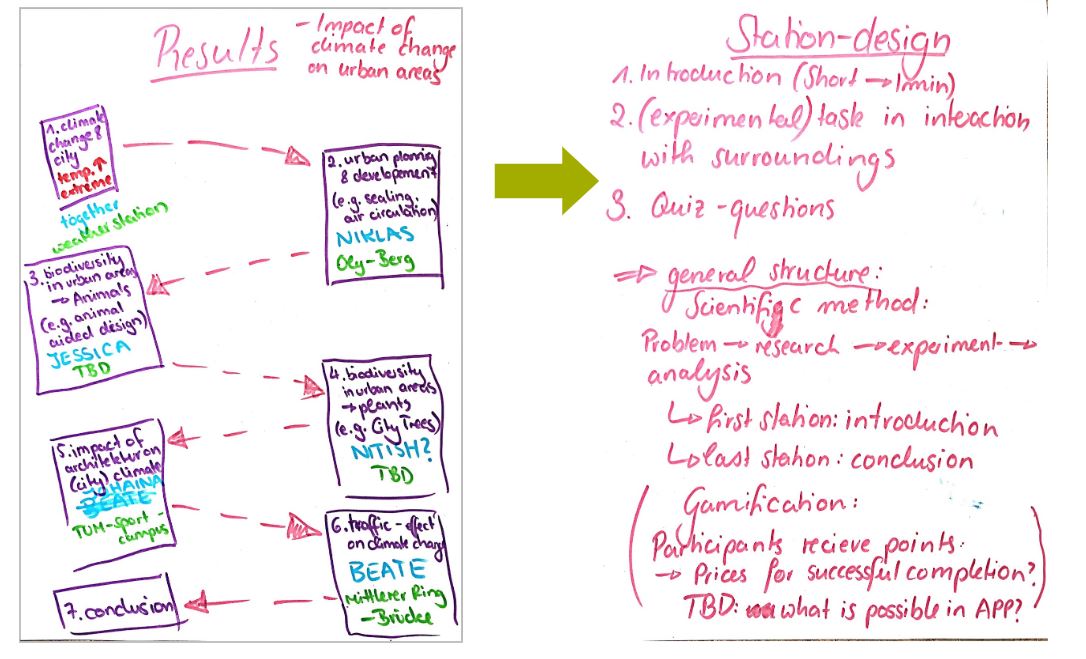 Results
- Impact of
climate change
on urban areas
1. climate
change &
city
temp. ↑
extreme
together
weather station
2. urban planning
& developement
(e.g. sealing,
air circulation)
NIKLAS
Oly-Berg
3. biodiversity
in urban areas
→ Animals
(e.g. animal
aided design)
JESSICA
TBD
4. biodiversity
in urban areas
→ plants
(e.g. City Trees)
NITISH?
TBD
5. impact of
architektur on
(city) climate
BEATE
TUM-Sport-
campus
6. traffic - effect
on climate change
BEATE
Mittlerer Ring
- Brücke
7. conclusion
Station-design
1. Introduction (Short → 1min)
2. (experimental) task in interaction
with surroundings
3. Quiz-questions
⇒ general structure:
Scientific method:
Problem → research → experiment →
analysis
↳ first station: introduction
↳ last station: conclusion
(Gamification:
Participants recieve points.
→ Prices for successful completion?
TBD: what is possible in APP?)